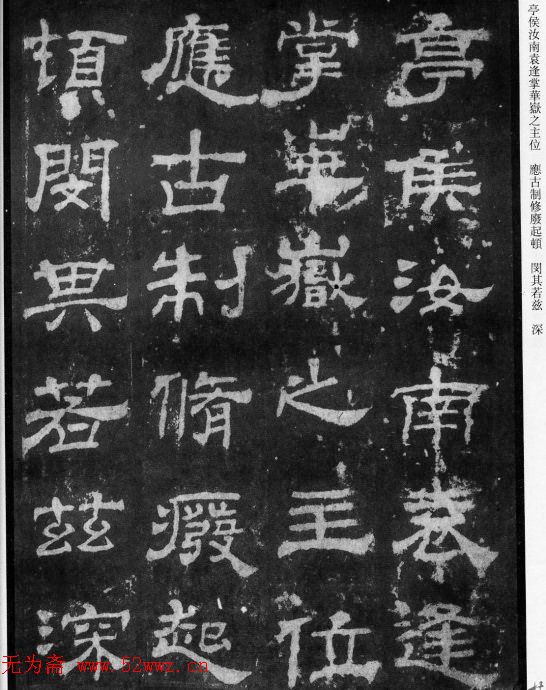 亭侯汝南袁逢掌華嶽之主位　應古制修廢起頓　閔其若茲　深
亭侯汝南袁逢
掌華嶽之主位
應古制脩癈起
頓閔其若茲深
无为斋 www.52wwz.cn